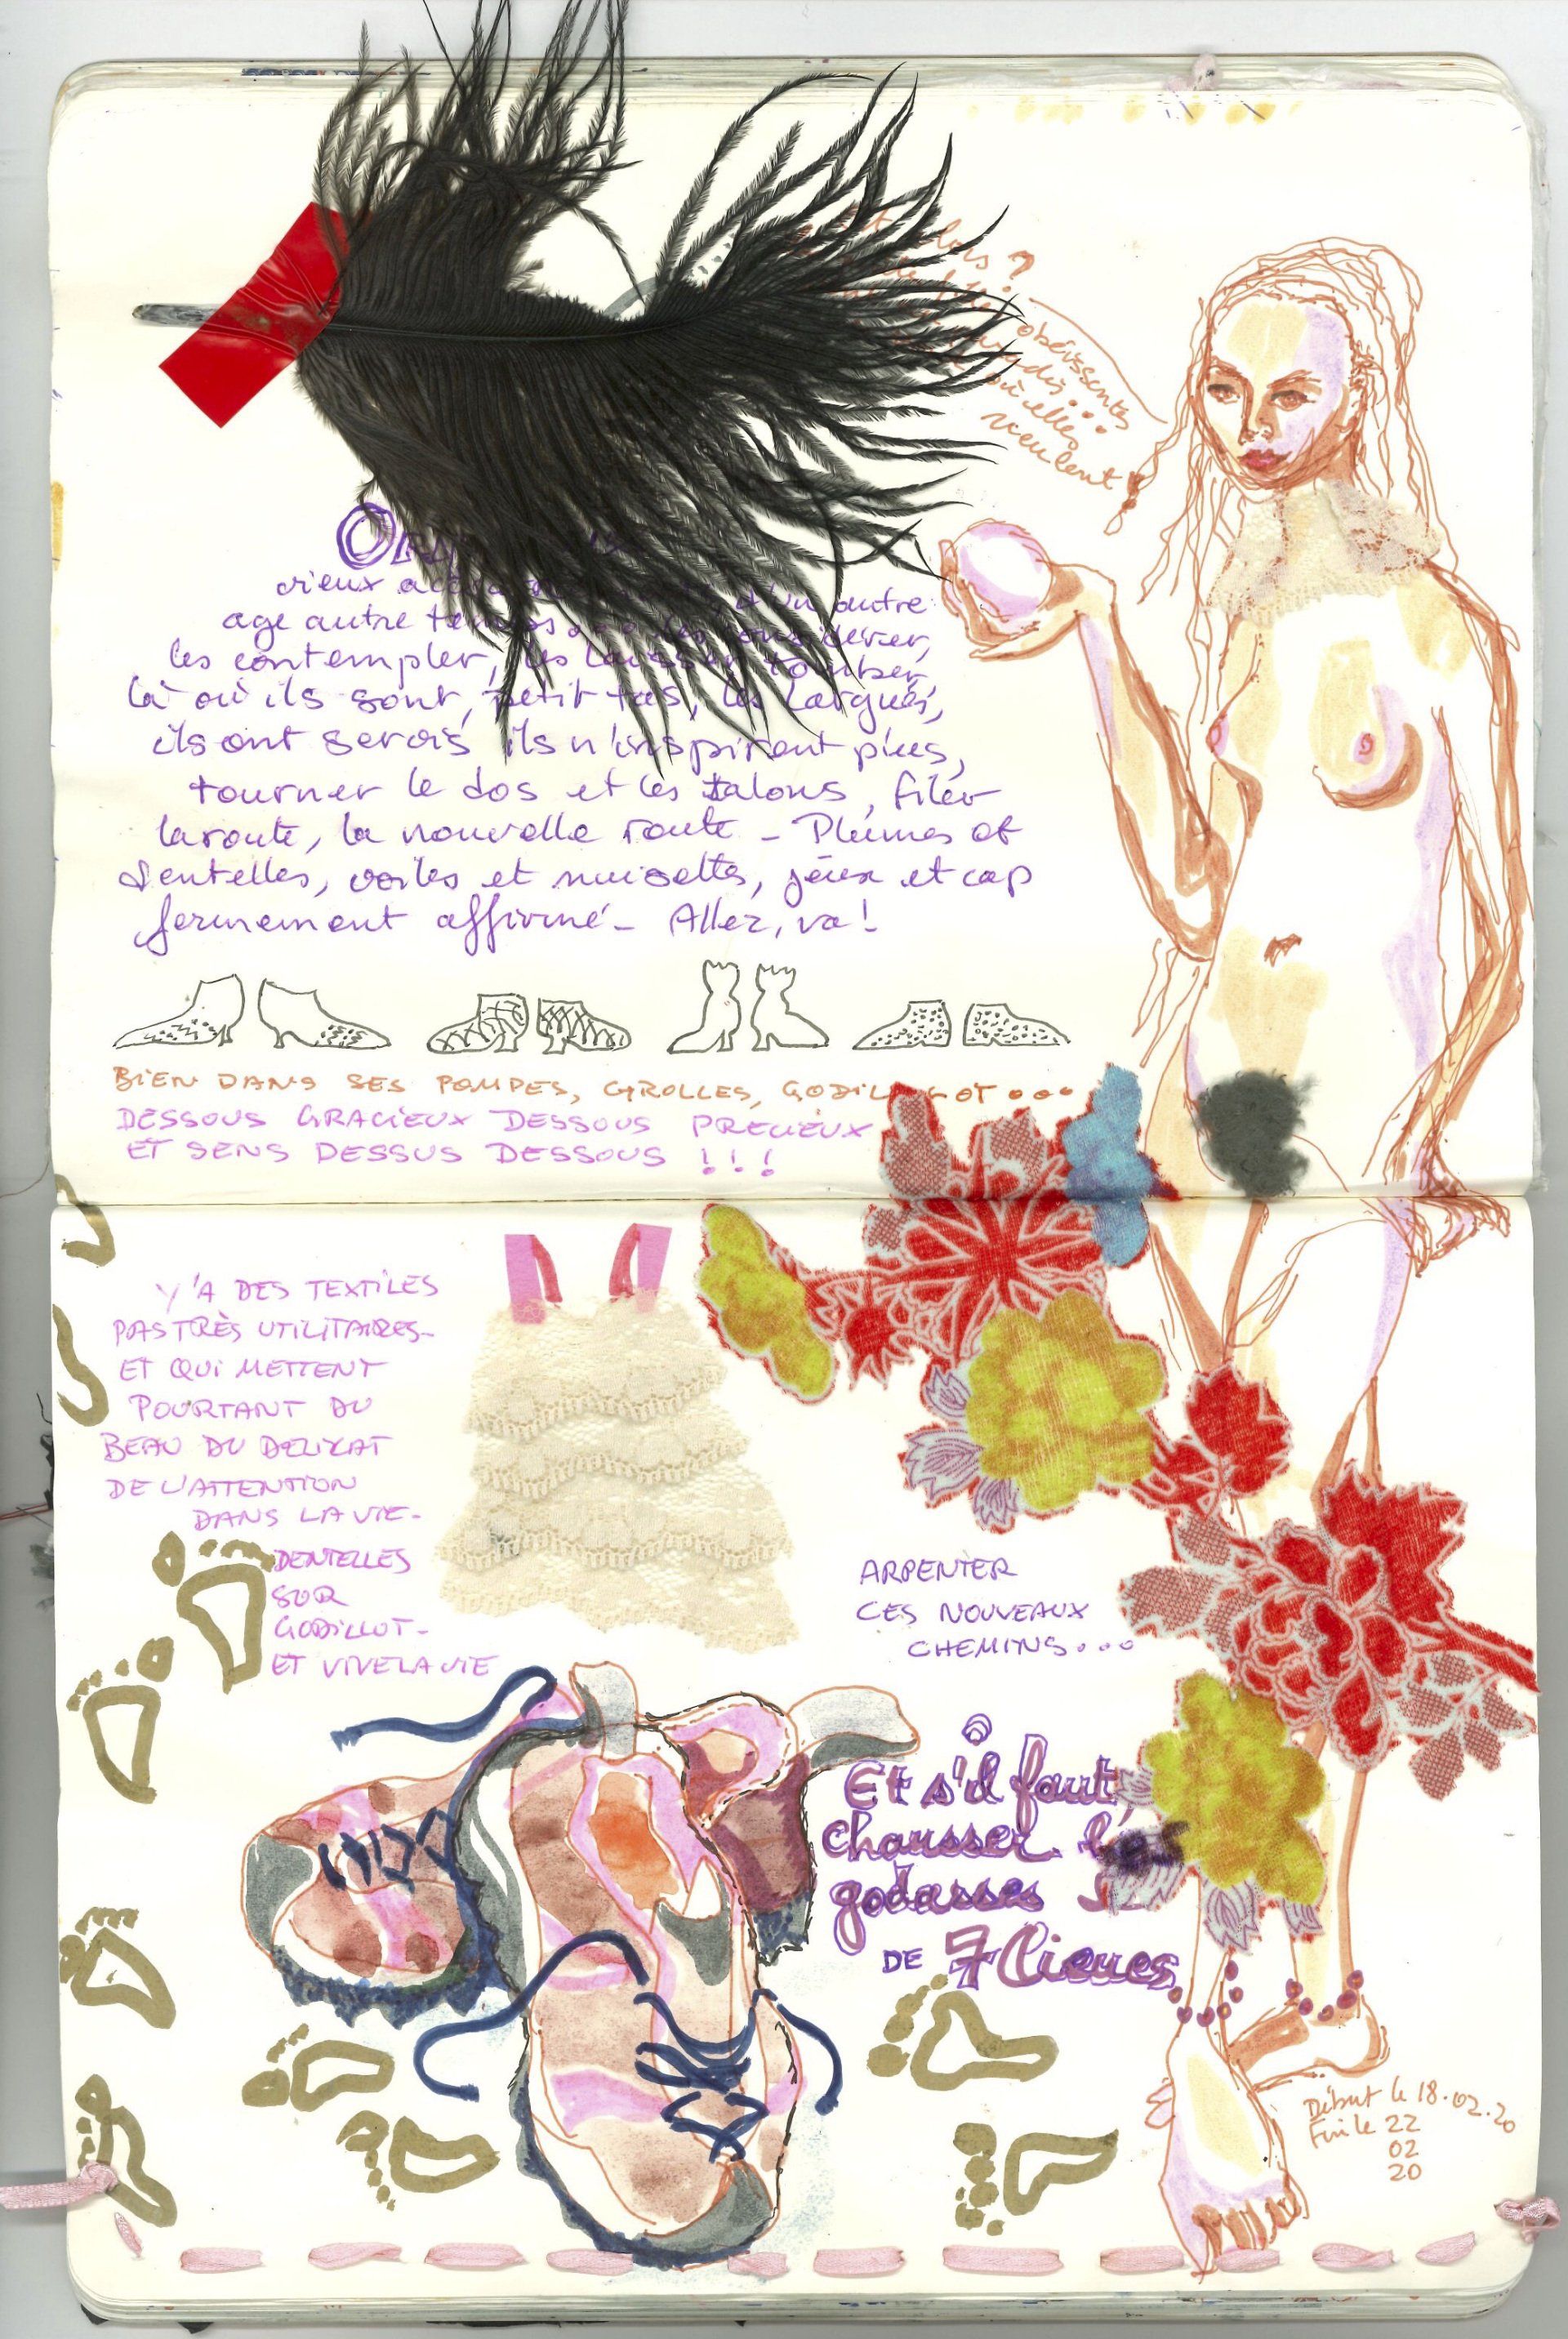 obéissents
où elles
veulent
vieux
autre
age autre temps
les contempler, les laisser tomber,
là où ils sont, petit tas, les largués,
ils ont servis ils n'inspirent plus,
tourner le dos et les talons, filer
la route, la nouvelle route - Plumes et
dentelles, voiles et nuisettes, jeux et cap
fermement affirmé - Allez, va!
BIEN DANS SES POMPES, GROLLES,
DESSOUS GRACIEUX DESSOUS PRECIEUX
ET SENS DESSUS DESSOUS !!!
Y'A DES TEXTILES
PAS TRÈS UTILITAIRES-
ET QUI METTENT
POURTANT DU
BEAU DU DELIKAT
DE L'ATTENTION
DANS LA VIE-
DENTELLES
SUR
GODILLOT-
ET VIVE LA VIE
ARPENTER
CES NOUVEAUX
CHEMINS...
Et s'il faut,
chausser
godasses
DE 7 lieues
Début le 18.02.20
Fin le 22
02
20